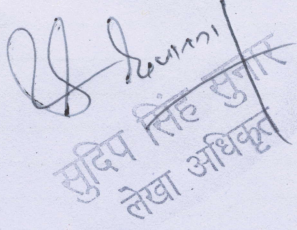 सुदिप सिंह सुनार
लेखा अधिकृत